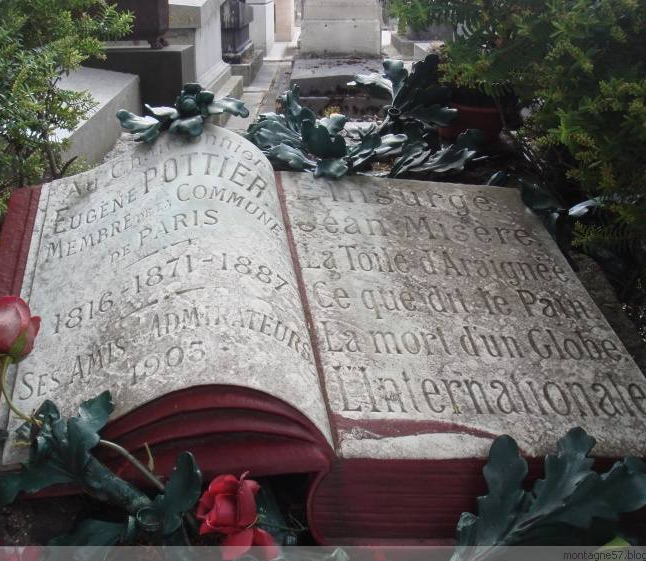 Au Chansonnier
EUGÈNE POTTIER
MEMBRE DE LA COMMUNE
DE PARIS
1816-1871-1887
SES AMIS ADMIRATEURS
1905
L'Insurgé
Jean Misère
La Toile d'Araignée
Ce que dit le Pain
La mort d'un Globe
L'Internationale
montagne57.blog